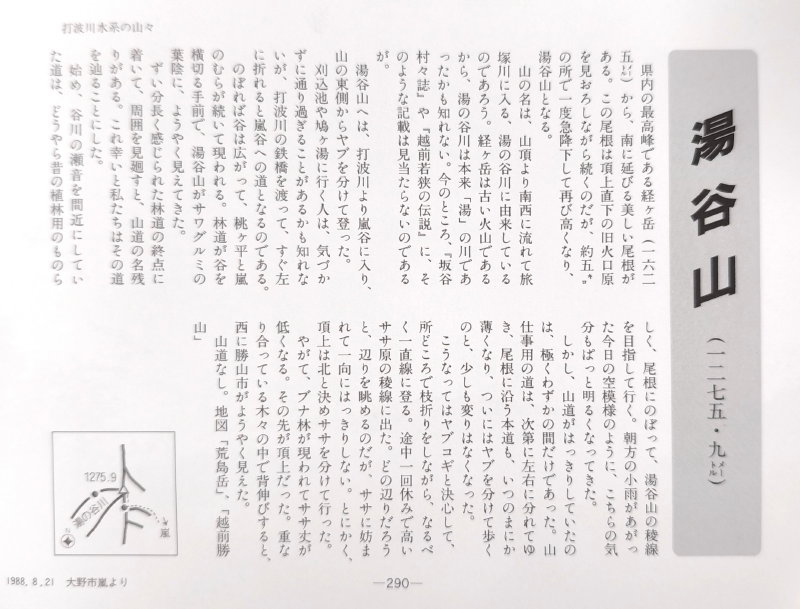 打波川水系の山々
湯谷山
(一二七五・九メートル)
県内の最高峰である経ヶ岳(一六二
五メートル)から、南に延びる美しい尾根が
ある。この尾根は頂上直下の旧火口原
を見おろしながら続くのだが、約五キロ
の所で一度急降下して再び高くなり、
湯谷山となる。
山の名は、山頂より南西に流れて旅
塚川に入る、湯の谷川に由来している
のであろう。経ヶ岳は古い火山である
から、湯の谷川は本来「湯」の川であ
ったかも知れない。今のところ、『坂谷
村々誌』や『越前若狭の伝説』に、そ
のような記載は見当たらないのである
が。
湯谷山へは、打波川より嵐谷に入り、
山の東側からヤブを分けて登った。
刈込池や鳩ヶ湯に行く人は、気づか
ずに通り過ぎることがあるかも知れな
いが、打波川の鉄橋を渡って、すぐ左
に折れると嵐谷への道となるのである。
のぼれば谷は広がって、桃ヶ平と嵐
のむらが続いて現われる。林道が谷を
横切る手前で、湯谷山がサワグルミの
葉陰に、ようやく見えてきた。
ずい分長く感じられた林道の終点に
着いて、周囲を見廻すと、山道の名残
りがある。これ幸いと私たちはその道
を辿ることにした。
始め、谷川の瀬音を間近にしてい
た道は、どうやら昔の植林用のものら
しく、尾根にのぼって、湯谷山の稜線
を目指して行く。朝方の小雨があがっ
た今日の空模様のように、こちらの気
分もぱっと明るくなってきた。
しかし、山道がはっきりしていたの
は、極くわずかの間だけであった。山
仕事用の道は、次第に左右に分れてゆ
き、尾根に沿う本道も、いつのまにか
薄くなり、ついにはヤブを分けて歩く
のと、少しも変りはなくなった。
こうなってはヤブコギと決心して、
所どころで枝折りをしながら、なるべ
く一直線に登る。途中一回休みで高い
ササ原の稜線に出た。どの辺りだろう
と、辺りを眺めるのだが、ササに妨ま
れて一向にはっきりしない。とにかく、
頂上は北と決めササを分けて行った。
やがて、ブナ林が現われてササ丈が
低くなる。その先が頂上だった。重な
り合っている木々の中で背伸びすると、
西に勝山市がようやく見えた。
山道なし。地図「荒島岳」、「越前勝
山」
1275.9
湯の谷川
嵐
1988.8.21 大野市嵐より
—290—